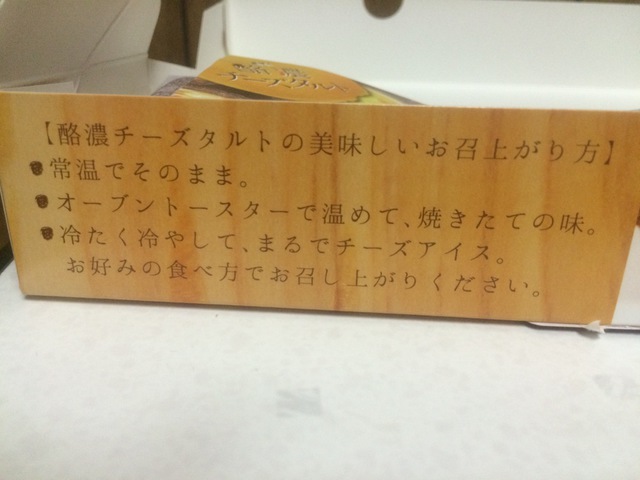 【酪濃チーズタルトの美味しいお召上がり方】
常温でそのまま。
オーブントースターで温めて、焼きたての味。
冷たく冷やして、まるでチーズアイス。
お好みの食べ方でお召し上がりください。